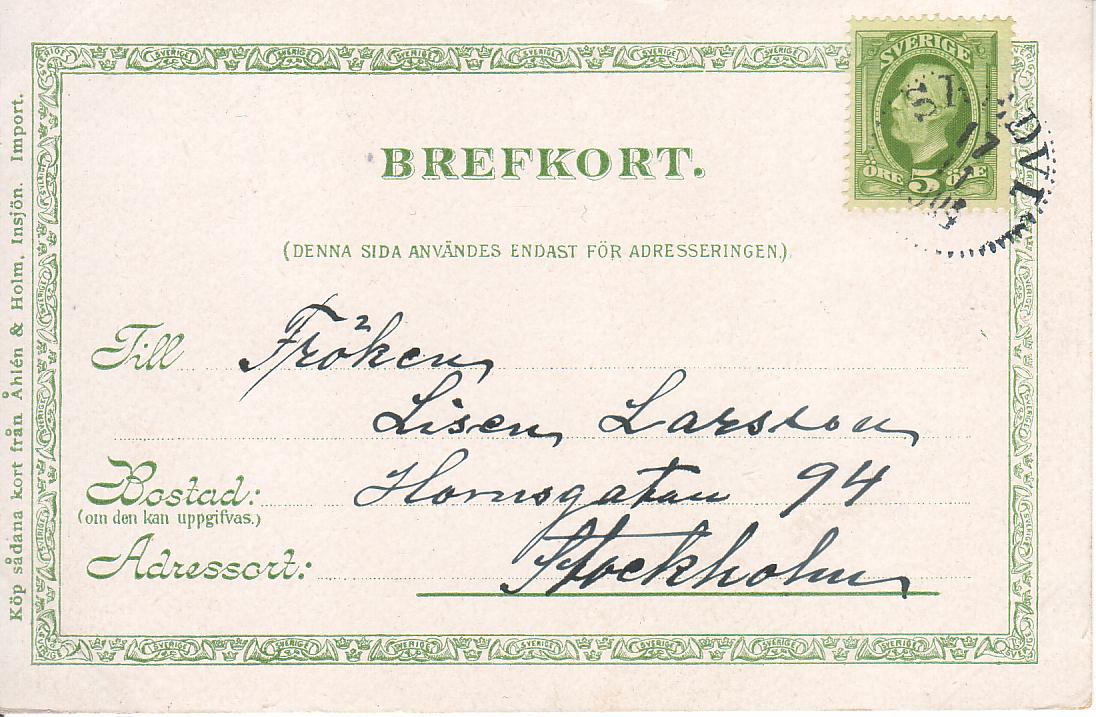 SVERIGE
ÖRE 5 ÖRE
17
11
BREFKORT.
(DENNA SIDA ANVÄNDES ENDAST FÖR ADRESSERINGEN.)
Till Fröken
Lisen Larsson
Bostad: Hornsgatan 94
(om den kan uppgifvas.)
Adressort: Stockholm
Köp sådana kort från Åhlén & Holm, Insjön. Import.